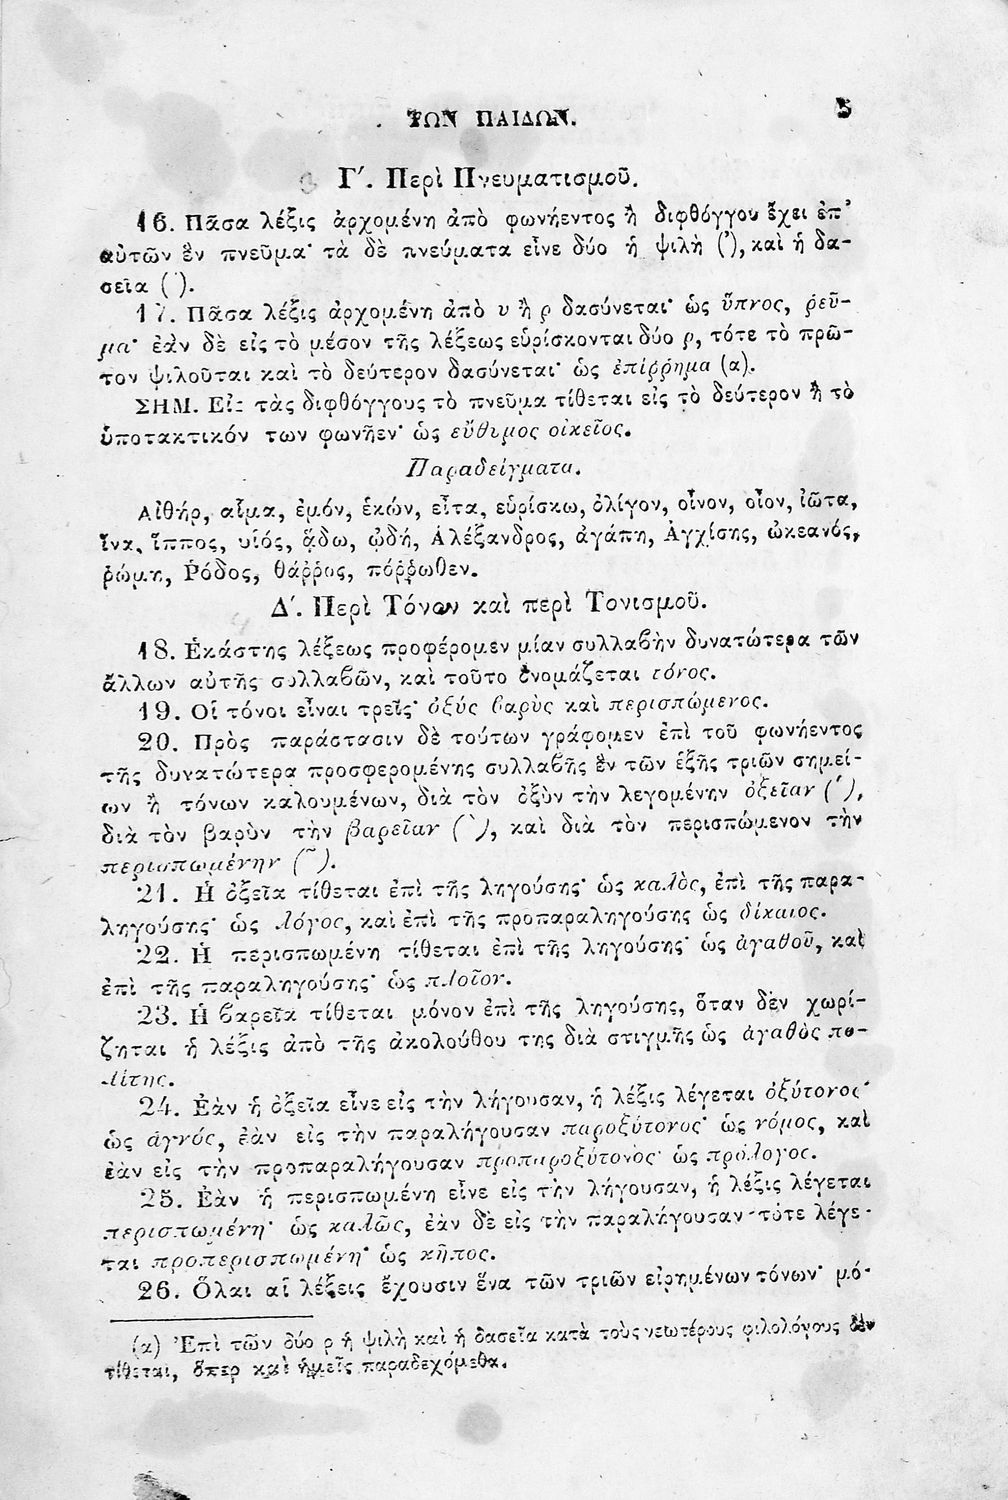 ΤΩΝ ΠΑΙΔΩΝ. 5
Γ΄. Περὶ Πνευματισμοῦ.
16. Πᾶσα λέξις ἀρχομένη ἀπὸ φωνήεντος ἢ διφθόγγου ἔχει ἐπ’
αὐτῶν ἓν πνεῦμα· τὰ δὲ πνεύματα εἶνε δύο ἡ ψιλὴ (᾿), καὶ ἡ δα-
σεῖα (῾).
17. Πᾶσα λέξις ἀρχομένη ἀπὸ υ ἢ ρ δασύνεται· ὡς ὕπνος, ῥεῦ-
μα· ἐὰν δὲ εἰς τὸ μέσον τῆς λέξεως εὑρίσκονται δύο ρ, τότε τὸ πρῶ-
τον ψιλοῦται καὶ τὸ δεύτερον δασύνεται· ὡς ἐπίῤῥημα (α).
ΣΗΜ. Εἰς τὰς διφθόγγους τὸ πνεῦμα τίθεται εἰς τὸ δεύτερον ἢ τὸ
ὑποτακτικόν των φωνῆεν· ὡς εὔθυμος οἰκεῖος.
Παραδείγματα.
Αἰθήρ, αἷμα, ἐμόν, ἑκών, εἶτα, εὑρίσκω, ὀλίγον, οἶνον, οἷον, ἰῶτα,
ἵνα, ἵππος, υἱός, ᾄδω, ᾠδή, Ἀλέξανδρος, ἀγάπη, Ἀγχίσης, ὠκεανός,
ῥώμη, Ῥόδος, θάῤῥος, πόῤῥωθεν.
Δ΄. Περὶ Τόνων καὶ περὶ Τονισμοῦ.
18. Ἑκάστης λέξεως προφέρομεν μίαν συλλαβὴν δυνατώτερα τῶν
ἄλλων αὐτῆς συλλαβῶν, καὶ τοῦτο ὀνομάζεται τόνος.
19. Οἱ τόνοι εἶναι τρεῖς· ὀξύς βαρὺς καὶ περισπώμενος.
20. Πρὸς παράστασιν δὲ τούτων γράφομεν ἐπὶ τοῦ φωνήεντος
τῆς δυνατώτερα προσφερομένης συλλαβῆς ἓν τῶν ἑξῆς τριῶν σημεί-
ων ἢ τόνων καλουμένων, διὰ τὸν ὀξὺν τὴν λεγομένην ὀξεῖαν (΄),
διὰ τὸν βαρὺν τὴν βαρεῖαν (`), καὶ διὰ τὸν περισπώμενον τὴν
περισπωμένην (῀).
21. Ἡ ὀξεῖα τίθεται ἐπὶ τῆς ληγούσης· ὡς καλὸς, ἐπὶ τῆς παρα-
ληγούσης· ὡς λόγος, καὶ ἐπὶ τῆς προπαραληγούσης ὡς δίκαιος.
22. Ἡ περισπωμένη τίθεται ἐπὶ τῆς ληγούσης· ὡς ἀγαθοῦ, καὶ
ἐπὶ τῆς παραληγούσης· ὡς πλοῖον.
23. Ἡ βαρεῖα τίθεται μόνον ἐπὶ τῆς ληγούσης, ὅταν δὲν χωρί-
ζηται ἡ λέξις ἀπὸ τῆς ἀκολούθου της διὰ στιγμῆς ὡς ἀγαθὸς πο-
λίτης.
24. Ἐὰν ἡ ὀξεῖα εἶνε εἰς τὴν λήγουσαν, ἡ λέξις λέγεται ὀξύτονος·
ὡς ἁγνός, ἐὰν εἰς τὴν παραλήγουσαν παροξύτονος· ὡς νόμος, καὶ
ἐὰν εἰς τὴν προπαραλήγουσαν προπαροξύτονος· ὡς πρόλογος.
25. Ἐὰν ἡ περισπωμένη εἶνε εἰς τὴν λήγουσαν, ἡ λέξις λέγεται
περισπωμένη· ὡς καλῶς, ἐὰν δὲ εἰς τὴν παραλήγουσαν τότε λέγε-
ται προπερισπωμένη· ὡς κῆπος.
26. Ὅλαι αἱ λέξεις ἔχουσιν ἕνα τῶν τριῶν εἰρημένων τόνων· μό-
(α) Ἐπὶ τῶν δύο ρ ἡ ψιλὴ καὶ ἡ δασεῖα κατὰ τοὺς νεωτέρους φιλολόγους δὲν
τίθεται, ὅπερ καὶ ἡμεῖς παραδεχόμεθα.